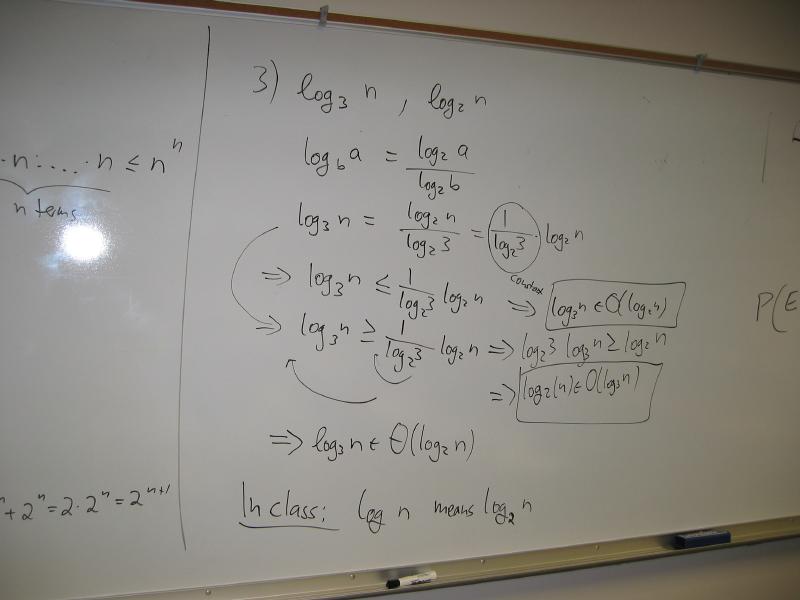 · n · ... · n ≤ n^n
n terms
^n + 2^n = 2 · 2^n = 2^(n+1)
3) log₃ n , log₂ n
log_b a = log₂ a / log₂ b
log₃ n = log₂ n / log₂ 3 = 1/log₂ 3 · log₂ n
⇒ log₃ n ≤ 1/log₂ 3 log₂ n ⇒ log₃ n ∈ O(log₂ n)
⇒ log₃ n ≥ 1/log₂ 3 log₂ n ⇒ log₂ 3 log₃ n ≥ log₂ n
⇒ log₂(n) ∈ O(log₃ n)
⇒ log₃ n ∈ Θ(log₂ n)
In class: log n means log₂ n
P(E